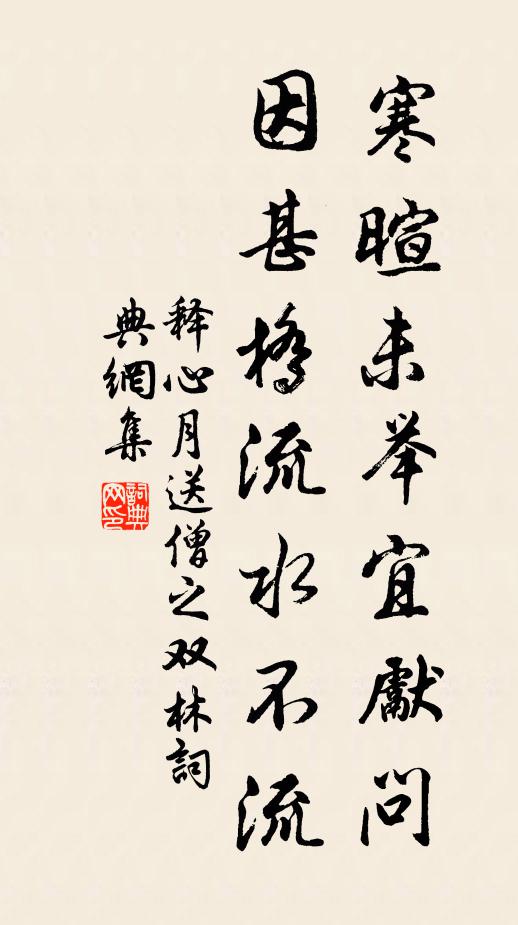 寒暄未举宜献问
因甚桥流水不流
释心月送僧之双林詞
典網集
詞典
网印